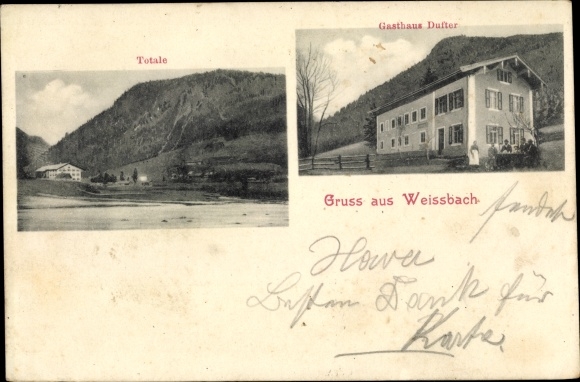 Totale
Gasthaus Dufter
Gruss aus Weissbach
sendet
Besten Dank für
Karte.